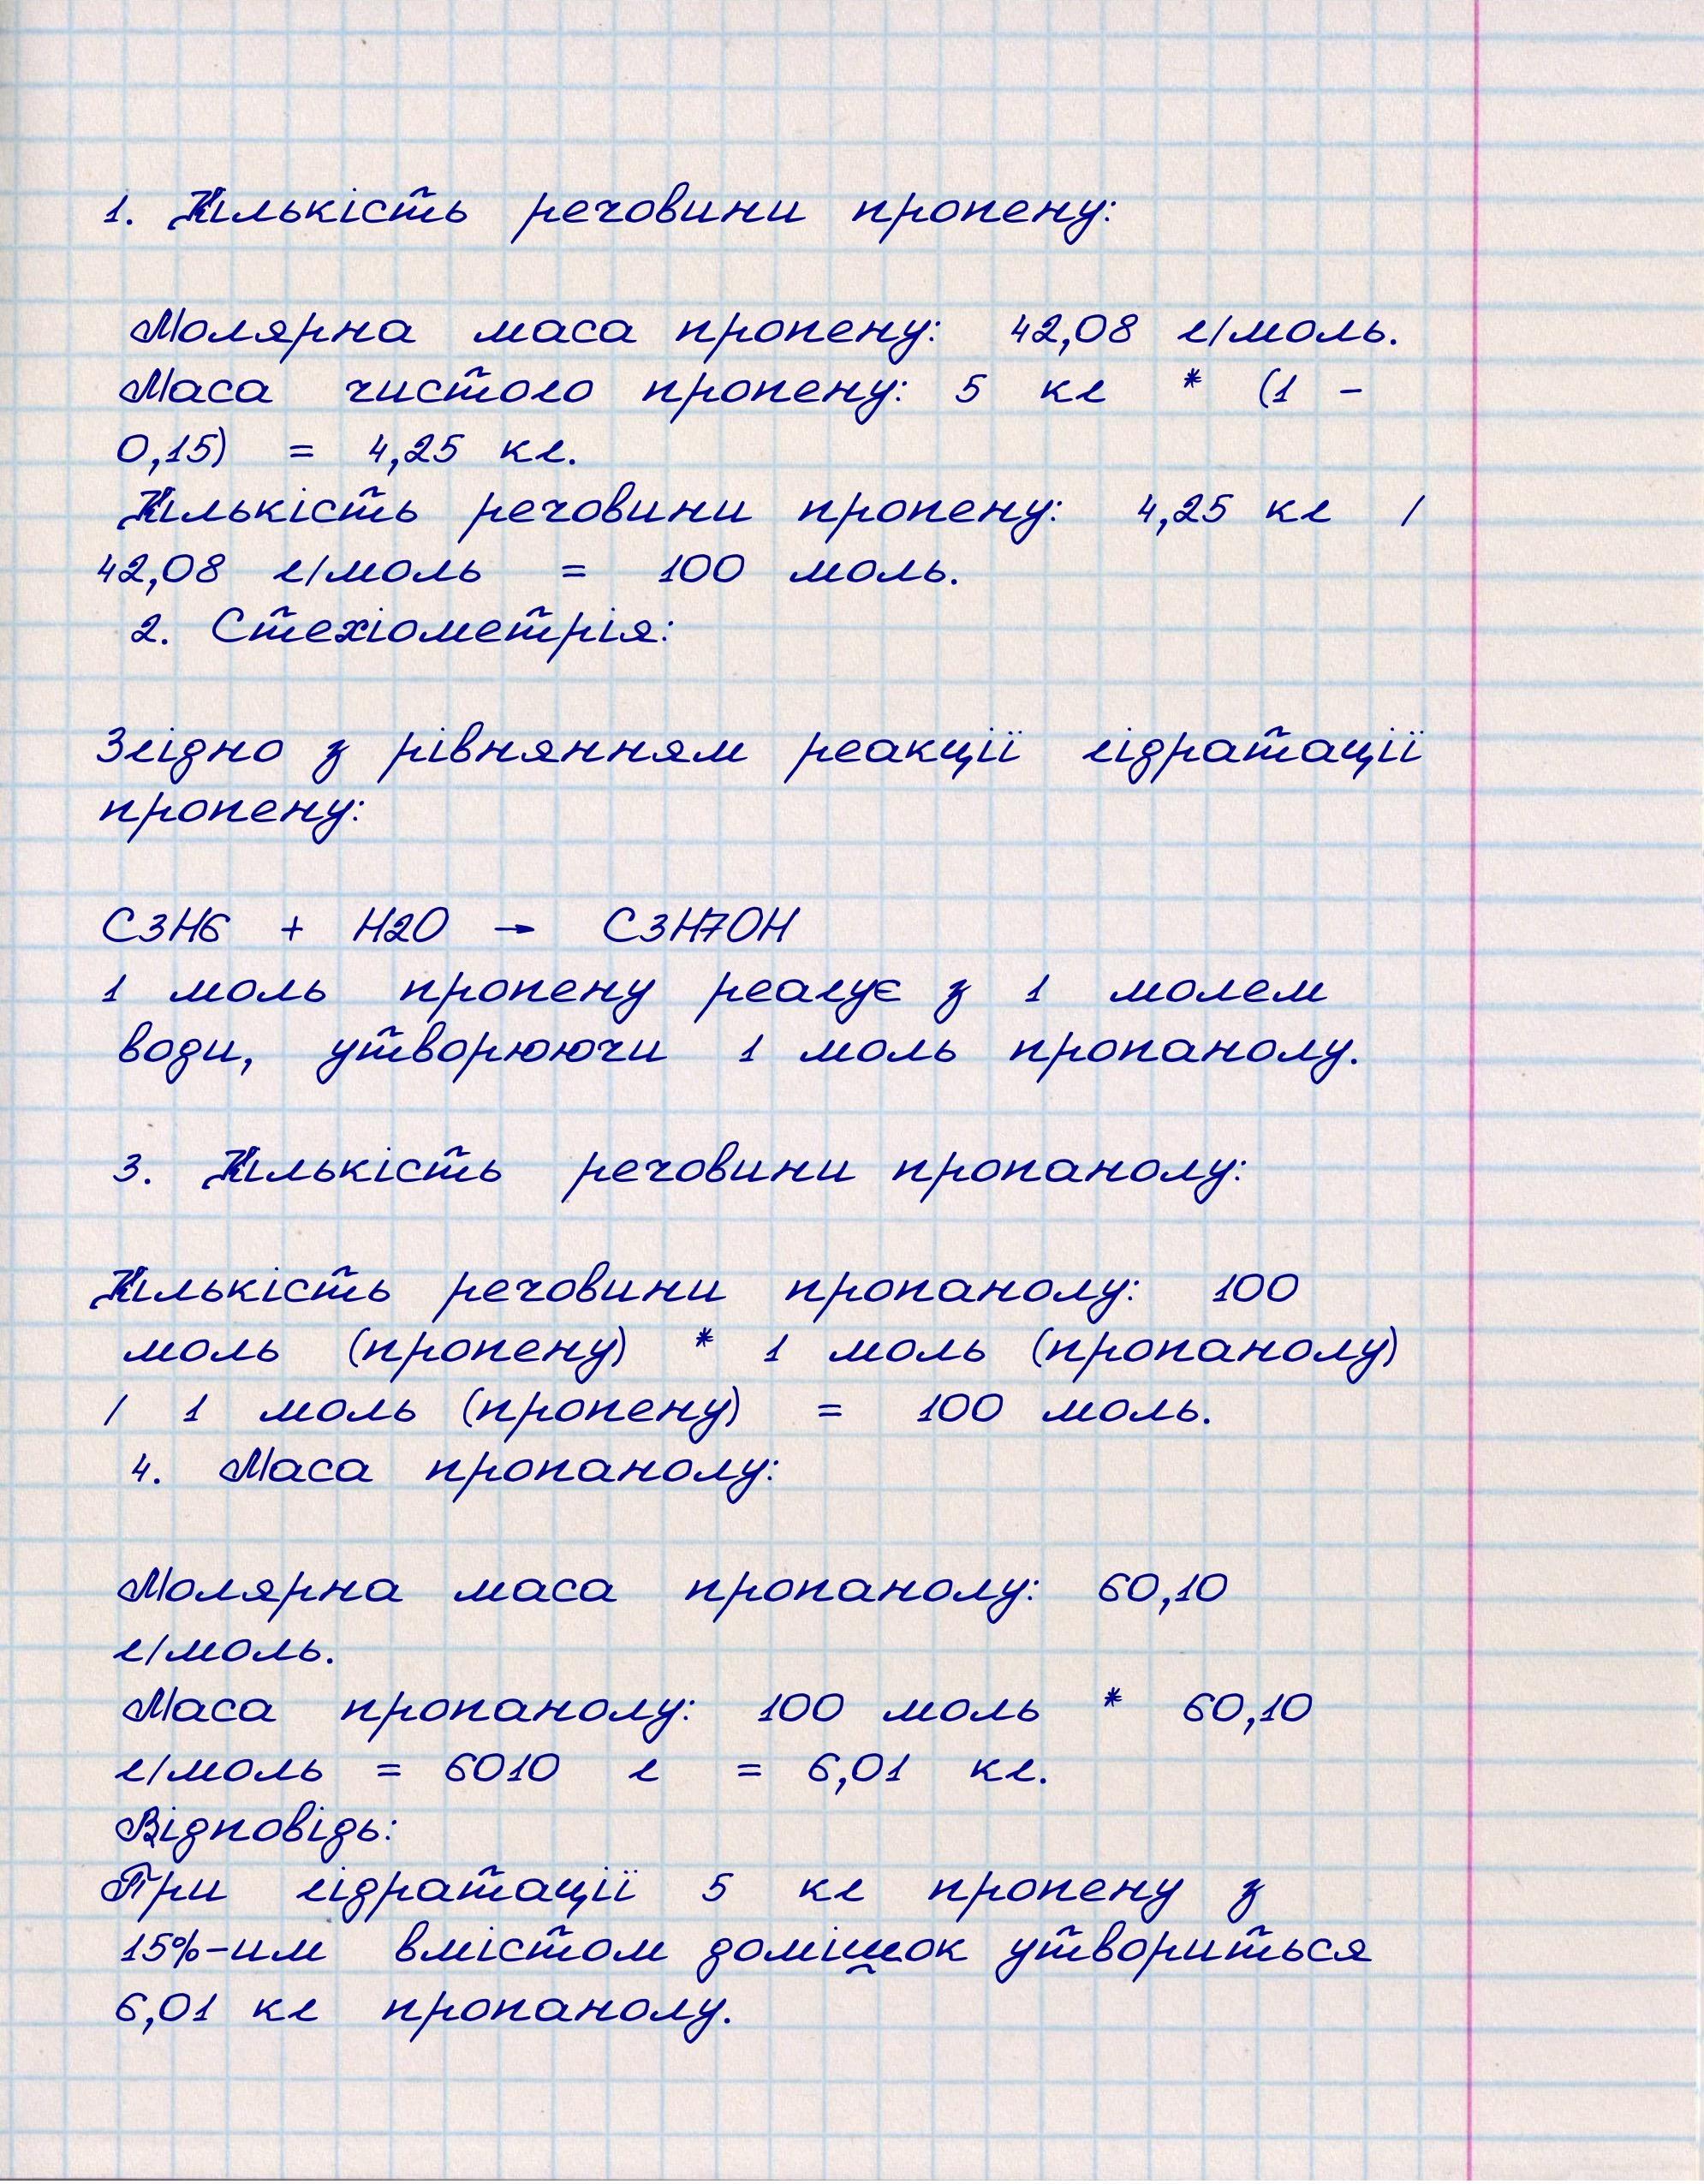 1. Кількість речовини пропену:
Молярна маса пропену: 42,08 г/моль.
Маса чистого пропену: 5 кг * (1 -
0,15) = 4,25 кг.
Кількість речовини пропену: 4,25 кг /
42,08 г/моль = 100 моль.
2. Стехіометрія:
Згідно з рівнянням реакції гідратації
пропену:
C3H6 + H2O → C3H7OH
1 моль пропену реагує з 1 молем
води, утворюючи 1 моль пропанолу.
3. Кількість речовини пропанолу:
Кількість речовини пропанолу: 100
моль (пропену) * 1 моль (пропанолу)
/ 1 моль (пропену) = 100 моль.
4. Маса пропанолу:
Молярна маса пропанолу: 60,10
г/моль.
Маса пропанолу: 100 моль * 60,10
г/моль = 6010 г = 6,01 кг.
Відповідь:
При гідратації 5 кг пропену з
15%-им вмістом домішок утвориться
6,01 кг пропанолу.